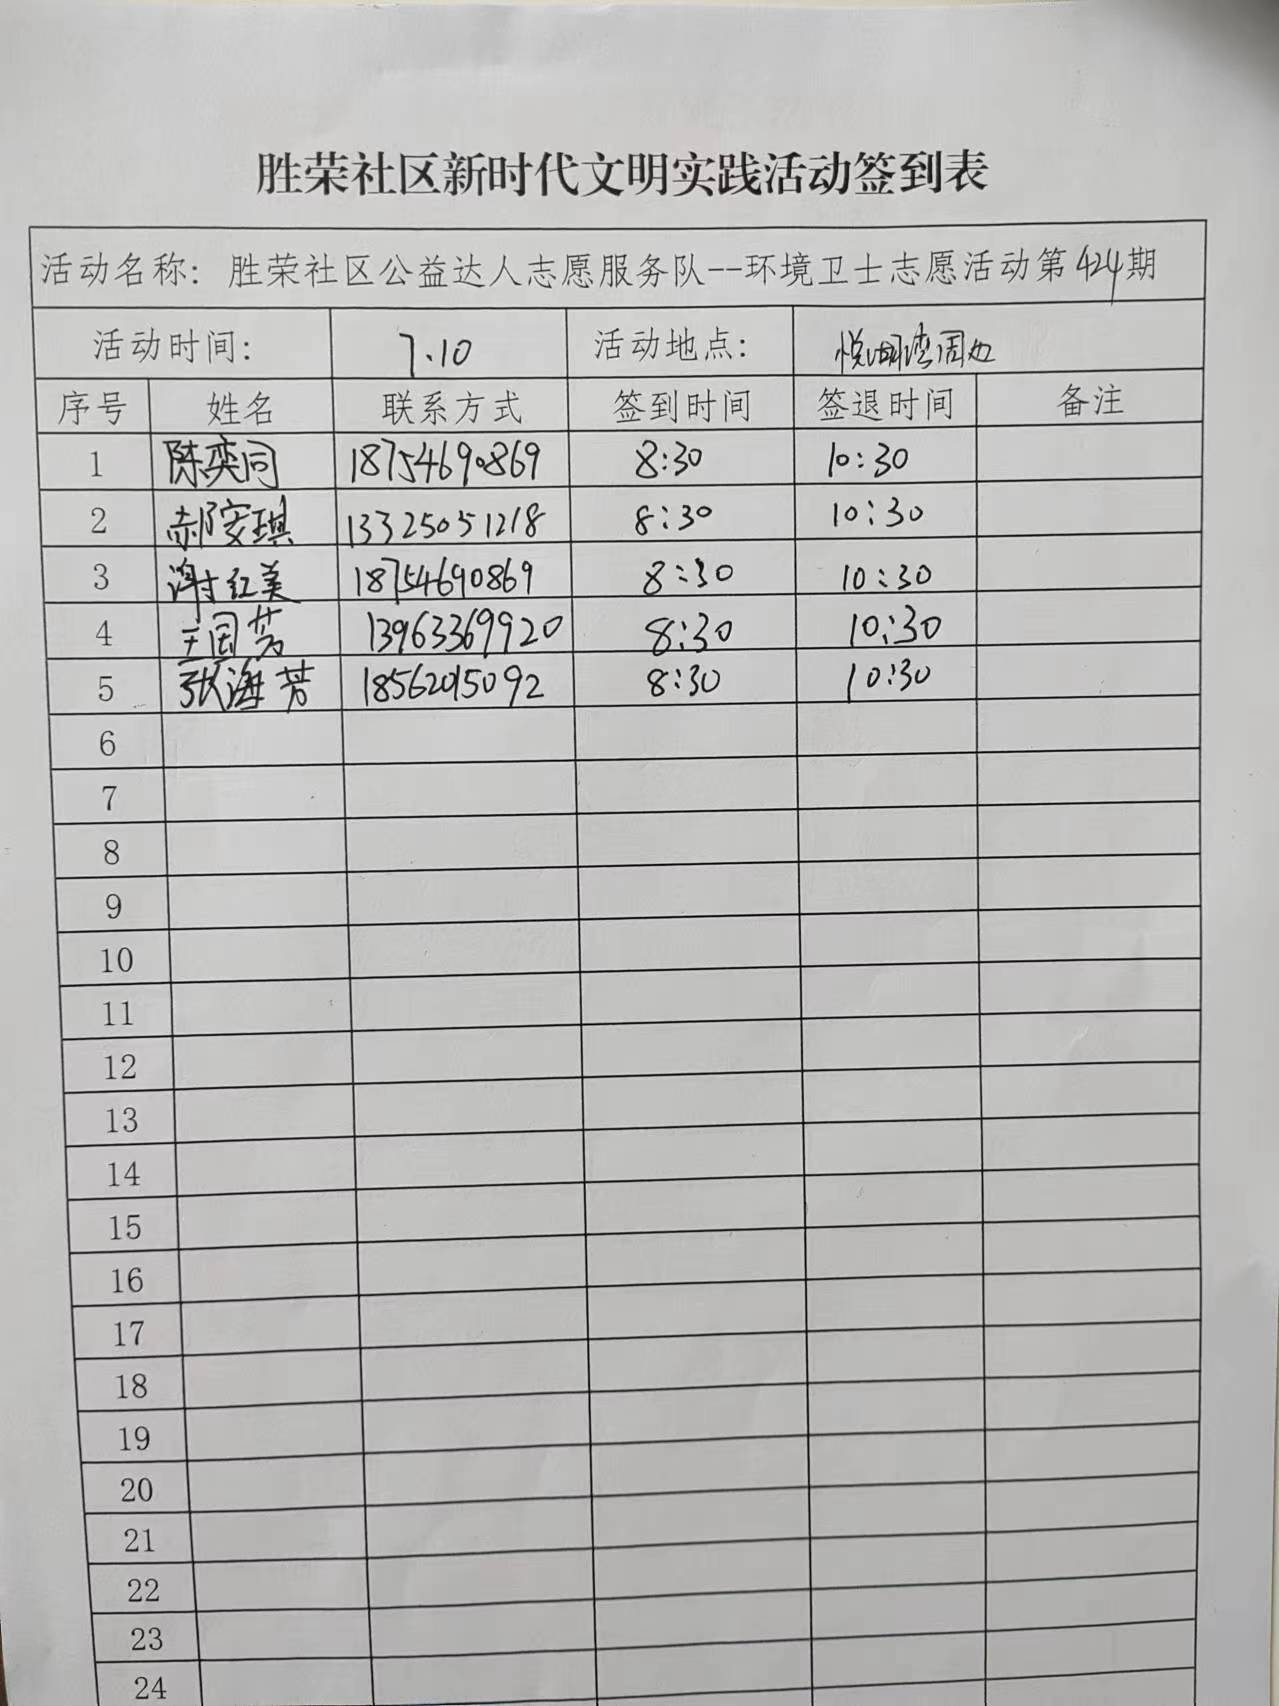 胜荣社区新时代文明实践活动签到表
活动名称：胜荣社区公益达人志愿服务队--环境卫士志愿活动第424期
活动时间： 7.10 活动地点： 悦湖湾周边
序号 姓名 联系方式 签到时间 签退时间 备注
1 陈奕同 18754690869 8:30 10:30
2 郝安琪 13325051218 8:30 10:30
3 谢红美 18754690869 8:30 10:30
4 王国芳 13963369920 8:30 10:30
5 张海芳 18562015092 8:30 10:30
6
7
8
9
10
11
12
13
14
15
16
17
18
19
20
21
22
23
24